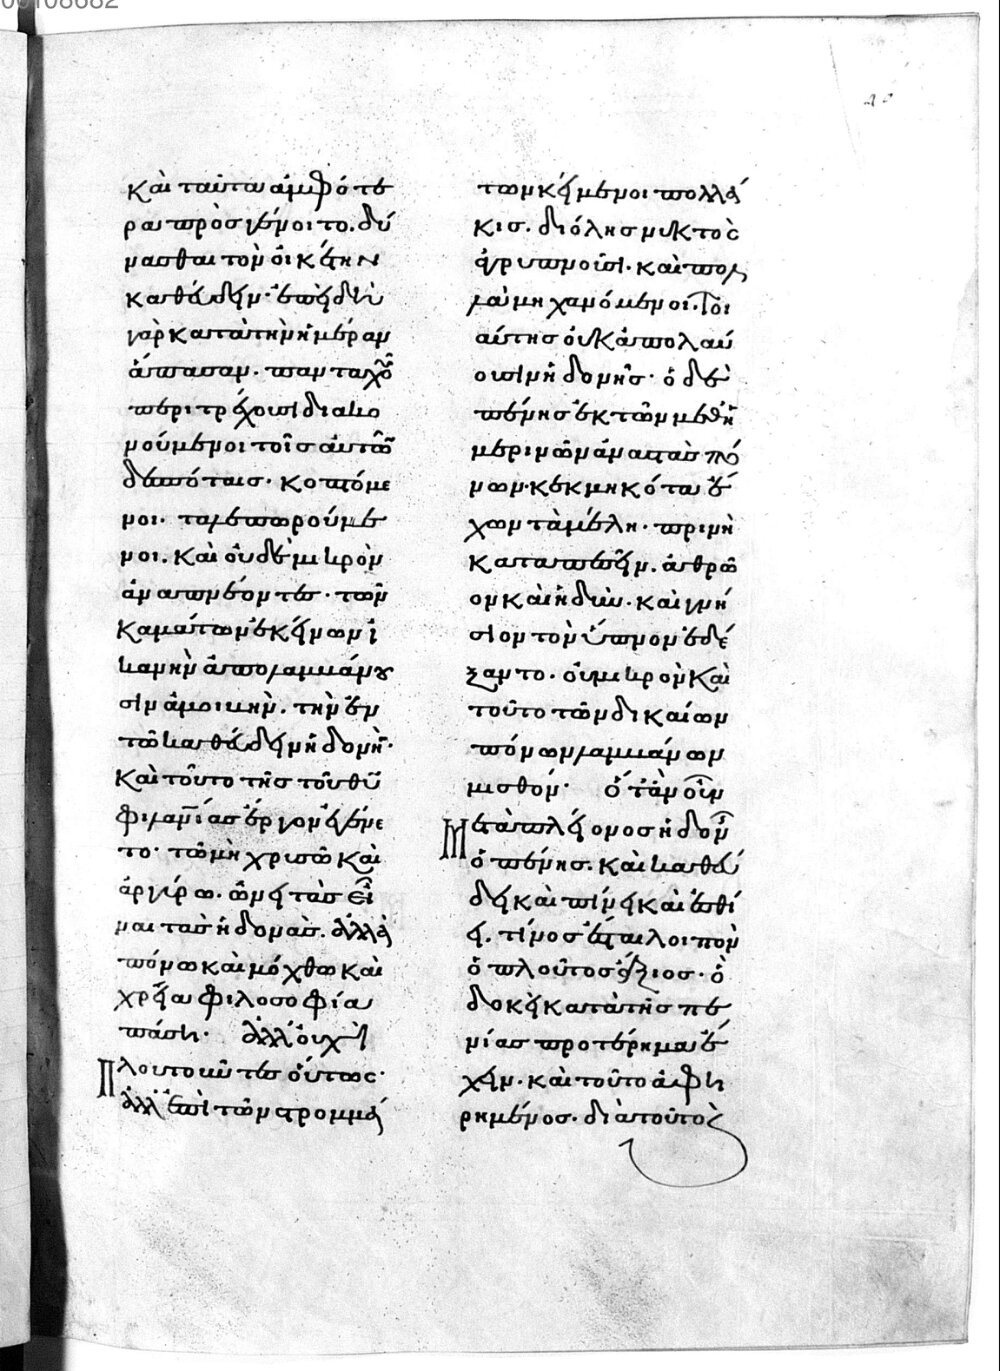 00108682
καὶ ταῦτα ἀμφότε
ρα προσγένοιτο. δύ
νασθαι τὸν οἰκέτην
καθεύδειν· ἐπειδὴ
γὰρ κατὰ τὴν ἡμέραν
ἅπασαν. πανταχοῦ
περιτρέχουσι διακο
νούμενοι τοῖς αὐτῶν
δεσπόταις· κοπτόμε
νοι· ταλαιπωρούμε
νοι. καὶ οὐδὲ μικρὸν
ἀναπνέοντες· τῶν
καμάτων ἐκείνων ἱ
κανὴν ἀπολαμβάνου
σιν ἀμοιβὴν. τὴν ἐν
τῶ καθεύδειν ἡδονὴν·
καὶ τοῦτο τῆς τοῦ θυ
φιλανίας ἔργον ἐγένε
το· τῶ μὴ χρυσῶ καὶ
ἀργύρω. ὠνεῖτὰς εἶ
ναι τὰς ἡδονὰς. ἀλλὰ
πόνω καὶ μόχθω καὶ
χρεία φιλοσοφία
πάση· ἀλλ' οὐχ οἱ
Πλουτοῦντες οὕτως·
ἀλλ' ἐπὶ τῶν στρομμά
των κείμενοι πολλά
κις. διόλης νυκτὸς
ἀγρυπνοῦσι· καὶ πολ
λὰ μηχανόμενοι. τοι
αύτης οὐκ ἀπολαύ
ουσιν ἡδονῆς· ὁ δὲ
πένης ἐκ τῶν μεθη
μερινῶν ἀναστὰς πό
νων· κεκμηκότα ἔ
χων τὰ μέλη· πρινὴ
καταπεσεῖν. ἀθρῶ
ον καὶ ἡδὺν· καὶ γνή
σιον τὸν ὕπνον ἐδέ
ξαντο· οὐ μικρὸν καὶ
τοῦτο τῶν δικαίων
πόνων λαμβάνων
μισθόν· ὅταν οὖν
Μετὰ πλείονος ἡδονῆς
ὁ πένης. καὶ καθεύ
δει καὶ πίνει καὶ ἐσθί
ει. τίνος ἔσται λοιπὸν
ὁ πλοῦτος ἄξιος· ὁ
δοκεῖ κατὰ τῆς πε
νίας προτέρημα ἔ
χειν· καὶ τοῦτο ἀφη
ρημένος· διατοῦτο